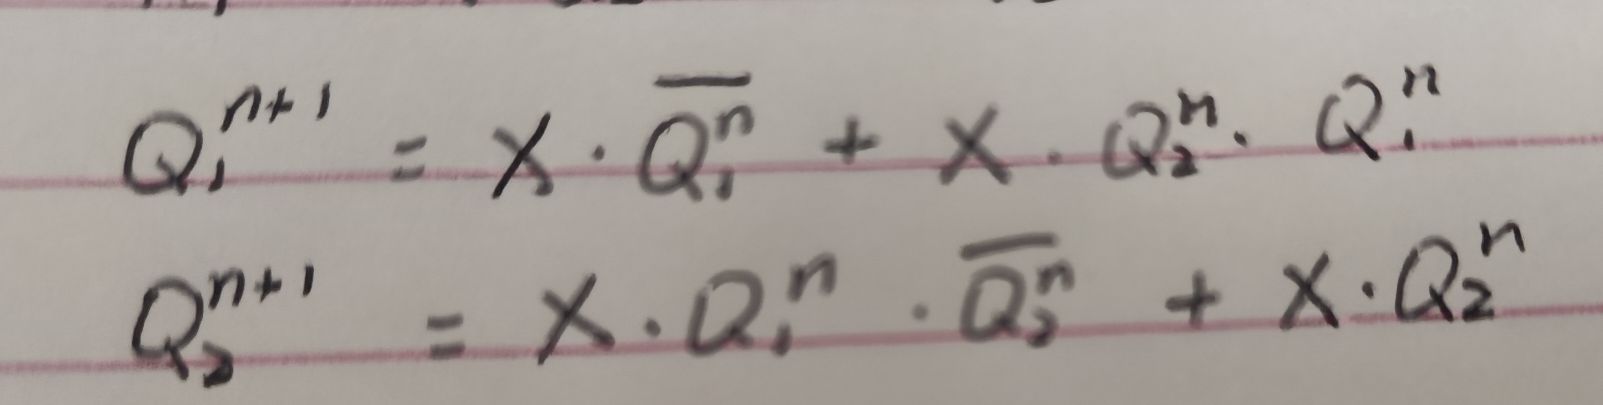 Q₁ⁿ⁺¹ = X · \overline{Q₁ⁿ} + X · Q₂ⁿ · Q₁ⁿ
Q₂ⁿ⁺¹ = X · Q₁ⁿ · \overline{Q₂ⁿ} + X · Q₂ⁿ